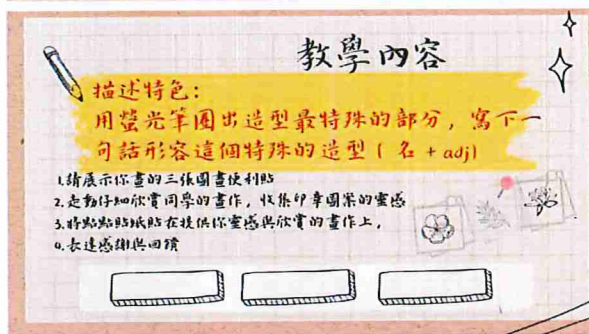 教學內容
描述特色:
用螢光筆圈出造型最特殊的部分，寫下一
句話形容這個特殊的造型(名+adj)
1.請展示你畫的三張圖畫便利貼
2.走動仔細欣賞同學的畫作，收集印章圖案的靈感
3.將點點貼紙貼在提供你靈感與欣賞的畫作上，
4.表達感謝與回饋